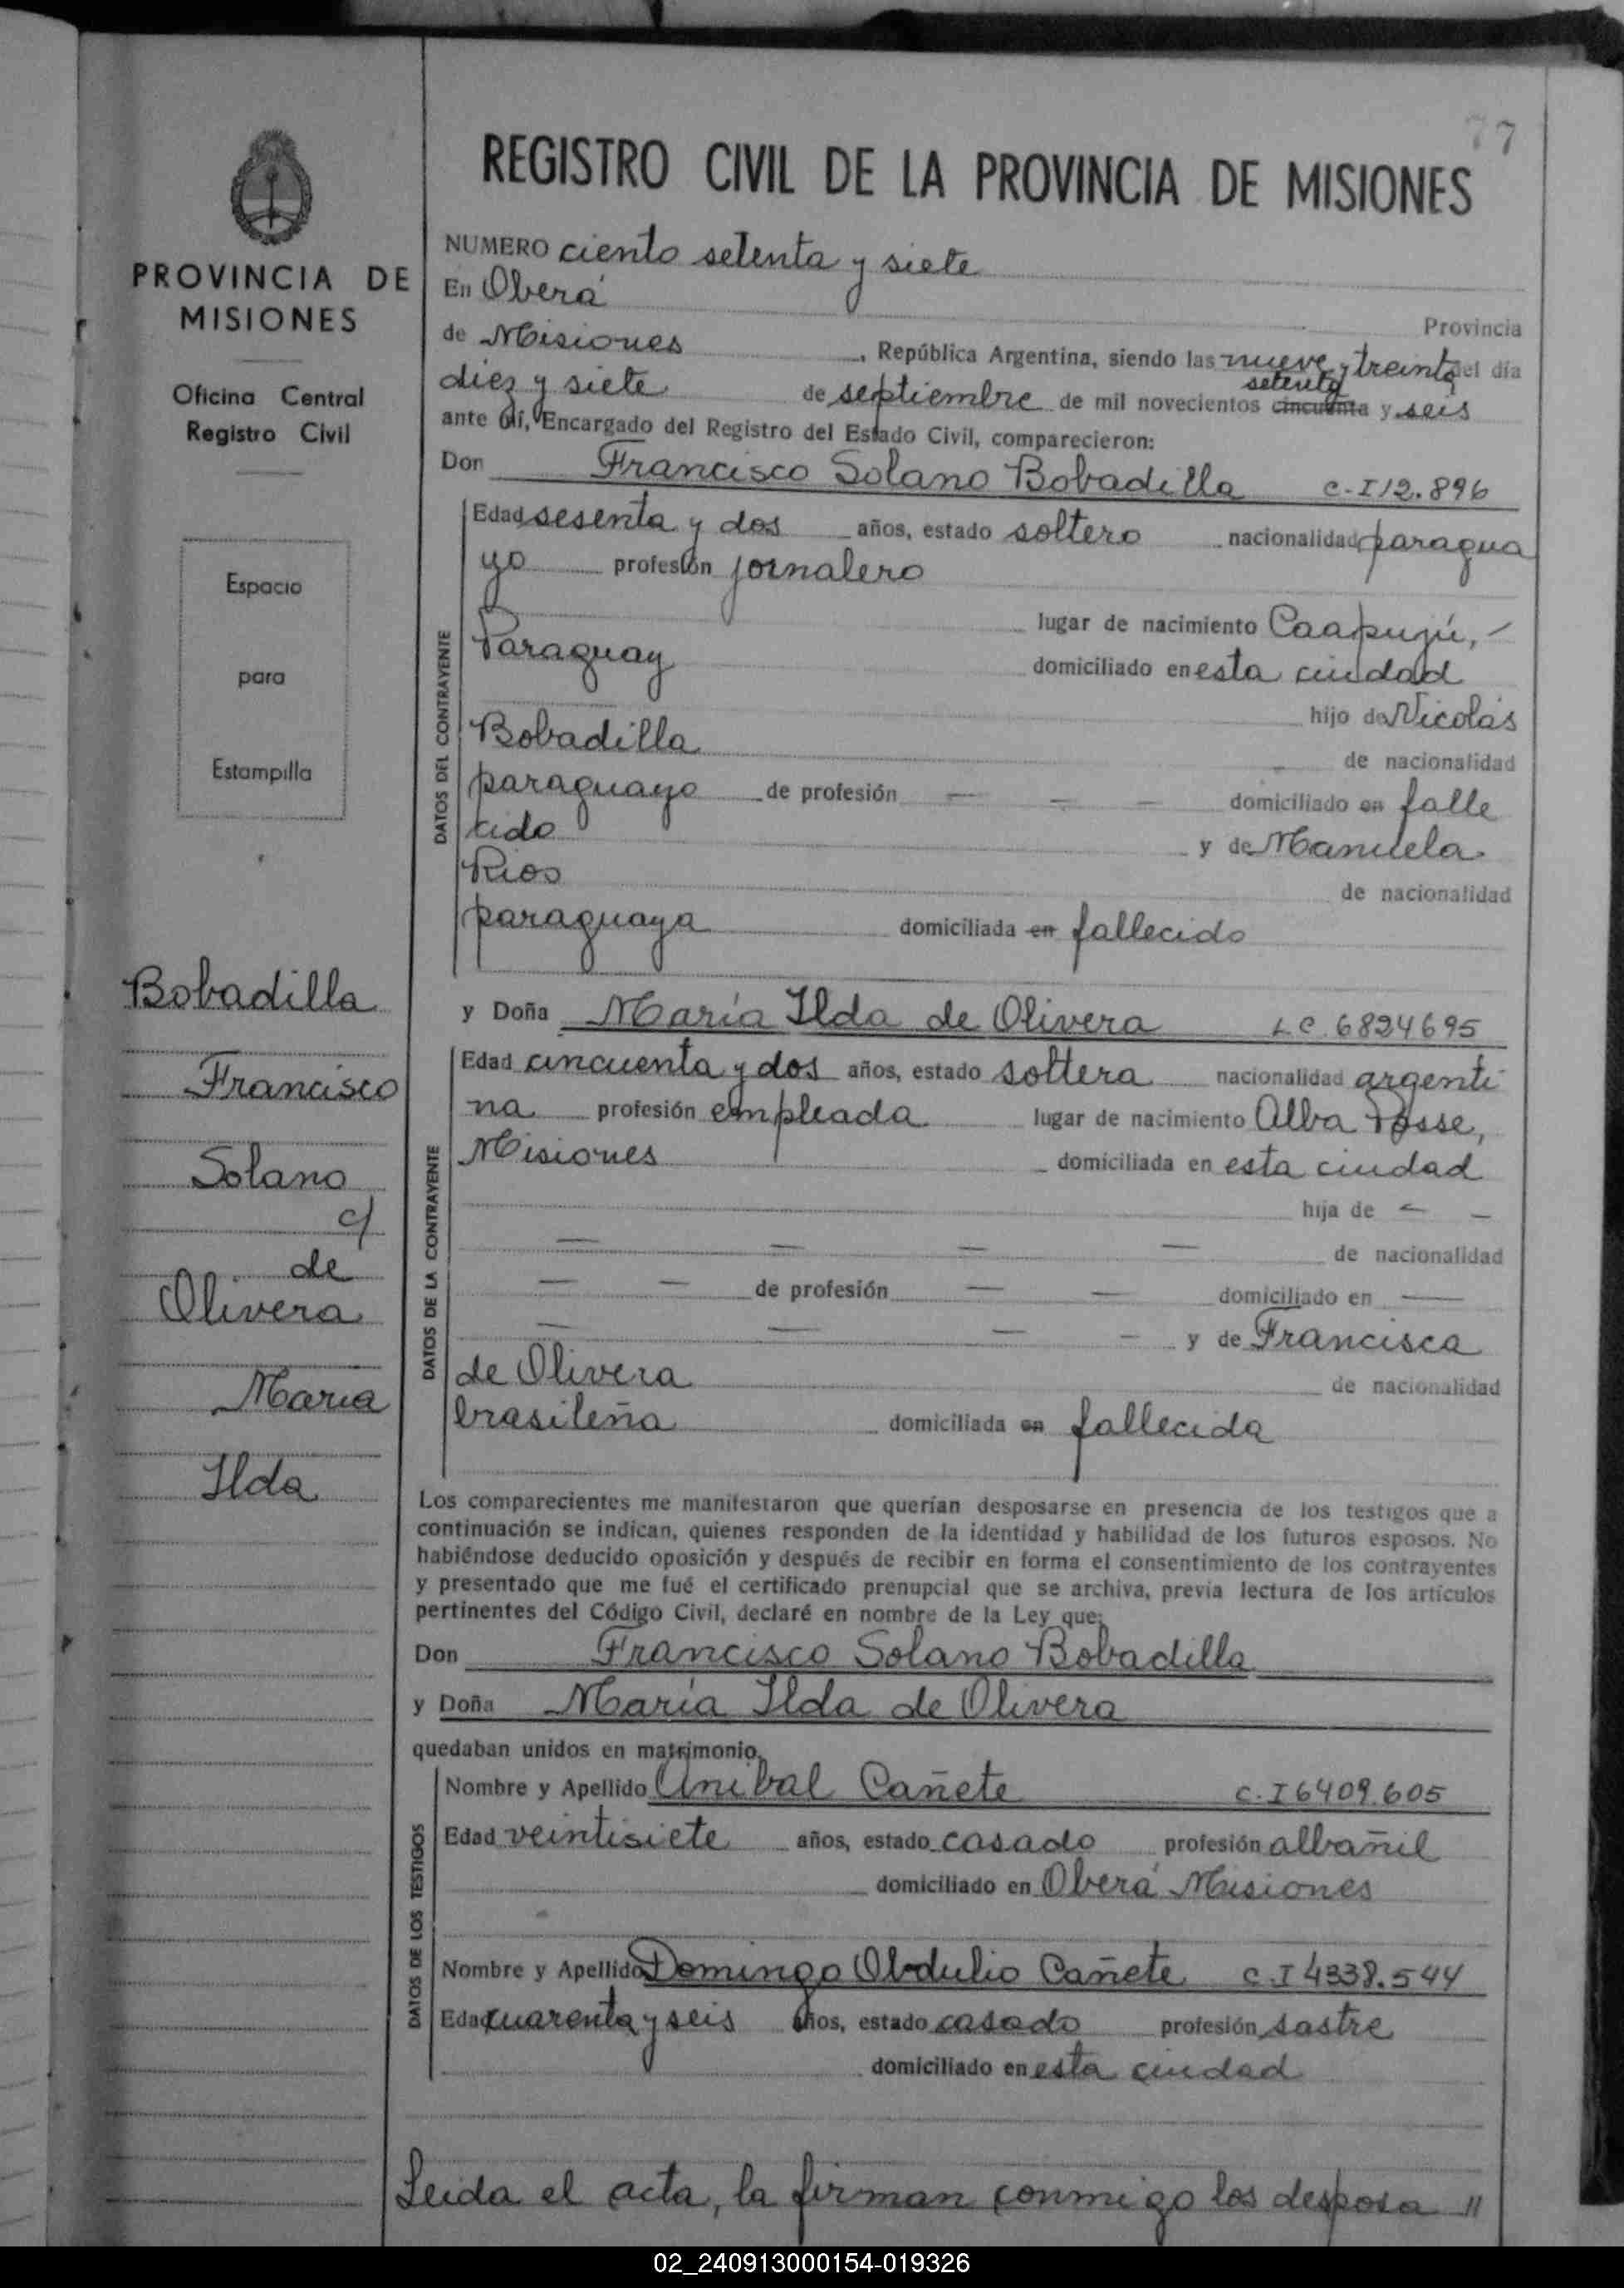 77
REGISTRO CIVIL DE LA PROVINCIA DE MISIONES
PROVINCIA DE
MISIONES
Oficina Central
Registro Civil
Espacio
para
Estampilla
Bobadilla
Francisco
Solano
c/
de
Olivera
María
Ilda
NUMERO ciento setenta y siete
En Oberá
Provincia
de Misiones, República Argentina, siendo las nueve y treinta del día
diez y siete de septiembre de mil novecientos cincuenta setenta y seis
ante mí, Encargado del Registro del Estado Civil, comparecieron:
Don Francisco Solano Bobadilla C-I 12.896
DATOS DEL CONTRAYENTE
Edad sesenta y dos años, estado soltero nacionalidad paragua
yo profesión jornalero
lugar de nacimiento Caapuzú, -
Paraguay domiciliado en esta ciudad
hijo de Nicolás
Bobadilla de nacionalidad
paraguayo de profesión — — — domiciliado en falle
cido y de Manuela
Rios de nacionalidad
paraguaya domiciliada en fallecido
y Doña María Ilda de Olivera L C. 6824695
DATOS DE LA CONTRAYENTE
Edad cincuenta y dos años, estado soltera nacionalidad argenti
na profesión empleada lugar de nacimiento Alba Posse,
Misiones domiciliada en esta ciudad
hija de — —
— — — — de nacionalidad
— — de profesión — — domiciliado en —
— — — — y de Francisca
de Olivera de nacionalidad
brasileña domiciliada en fallecida
Los comparecientes me manifestaron que querían desposarse en presencia de los testigos que a
continuación se indican, quienes responden de la identidad y habilidad de los futuros esposos. No
habiéndose deducido oposición y después de recibir en forma el consentimiento de los contrayentes
y presentado que me fué el certificado prenupcial que se archiva, previa lectura de los artículos
pertinentes del Código Civil, declaré en nombre de la Ley que:
Don Francisco Solano Bobadilla
y Doña María Ilda de Olivera
quedaban unidos en matrimonio.
DATOS DE LOS TESTIGOS
Nombre y Apellido Anibal Cañete C.I 6409.605
Edad veintisiete años, estado casado profesión albañil
domiciliado en Oberá Misiones
Nombre y Apellido Domingo Obdulio Cañete C.I 4338.544
Edad cuarenta y seis años, estado casado profesión sastre
domiciliado en esta ciudad
Leida el acta, la firman conmigo los desposa "
02_240913000154-019326